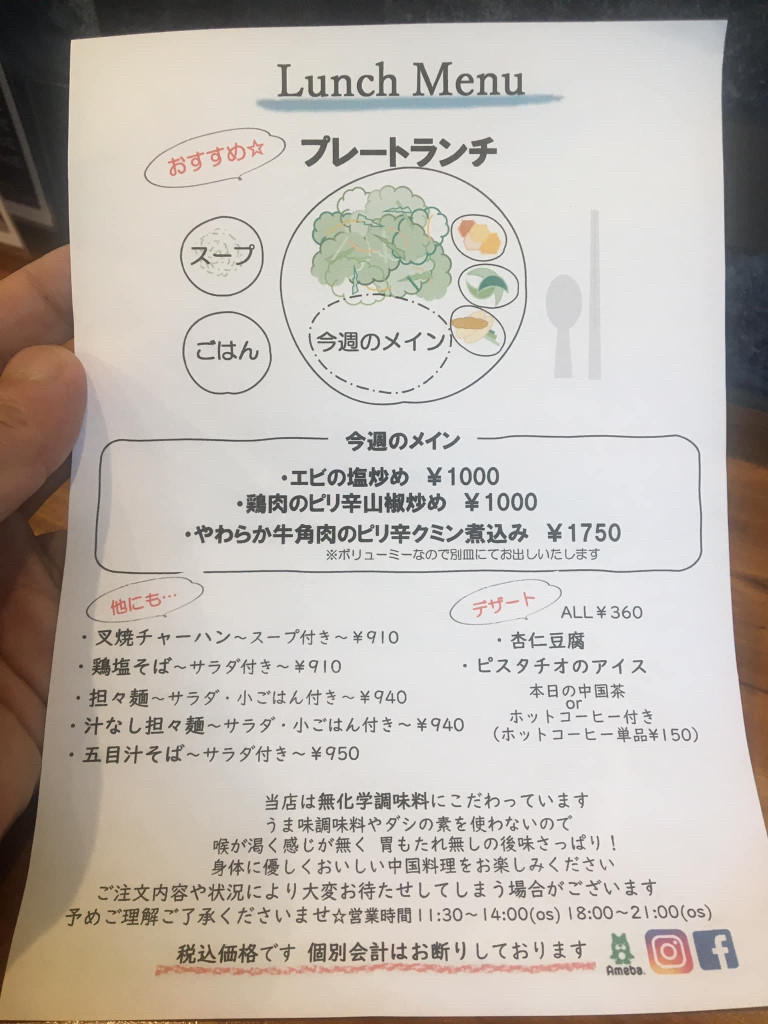 Lunch Menu
おすすめ☆
プレートランチ
スープ
ごはん
今週のメイン
今週のメイン
・エビの塩炒め ￥1000
・鶏肉のピリ辛山椒炒め ￥1000
・やわらか牛角肉のピリ辛クミン煮込み ￥1750
※ボリューミーなので別皿にてお出しいたします
他にも…
・叉焼チャーハン～スープ付き～￥910
・鶏塩そば～サラダ付き～￥910
・担々麺～サラダ・小ごはん付き～￥940
・汁なし担々麺～サラダ・小ごはん付き～￥940
・五目汁そば～サラダ付き～￥950
デザート
ALL￥360
・杏仁豆腐
・ピスタチオのアイス
本日の中国茶
or
ホットコーヒー付き
(ホットコーヒー単品¥150)
当店は無化学調味料にこだわっています
うま味調味料やダシの素を使わないので
喉が渇く感じが無く 胃もたれ無しの後味さっぱり！
身体に優しくおいしい中国料理をお楽しみください
ご注文内容や状況により大変お待たせしてしまう場合がございます
予めご理解ご了承くださいませ☆営業時間11:30～14:00(os) 18:00～21:00(os)
税込価格です 個別会計はお断りしております
Ameba